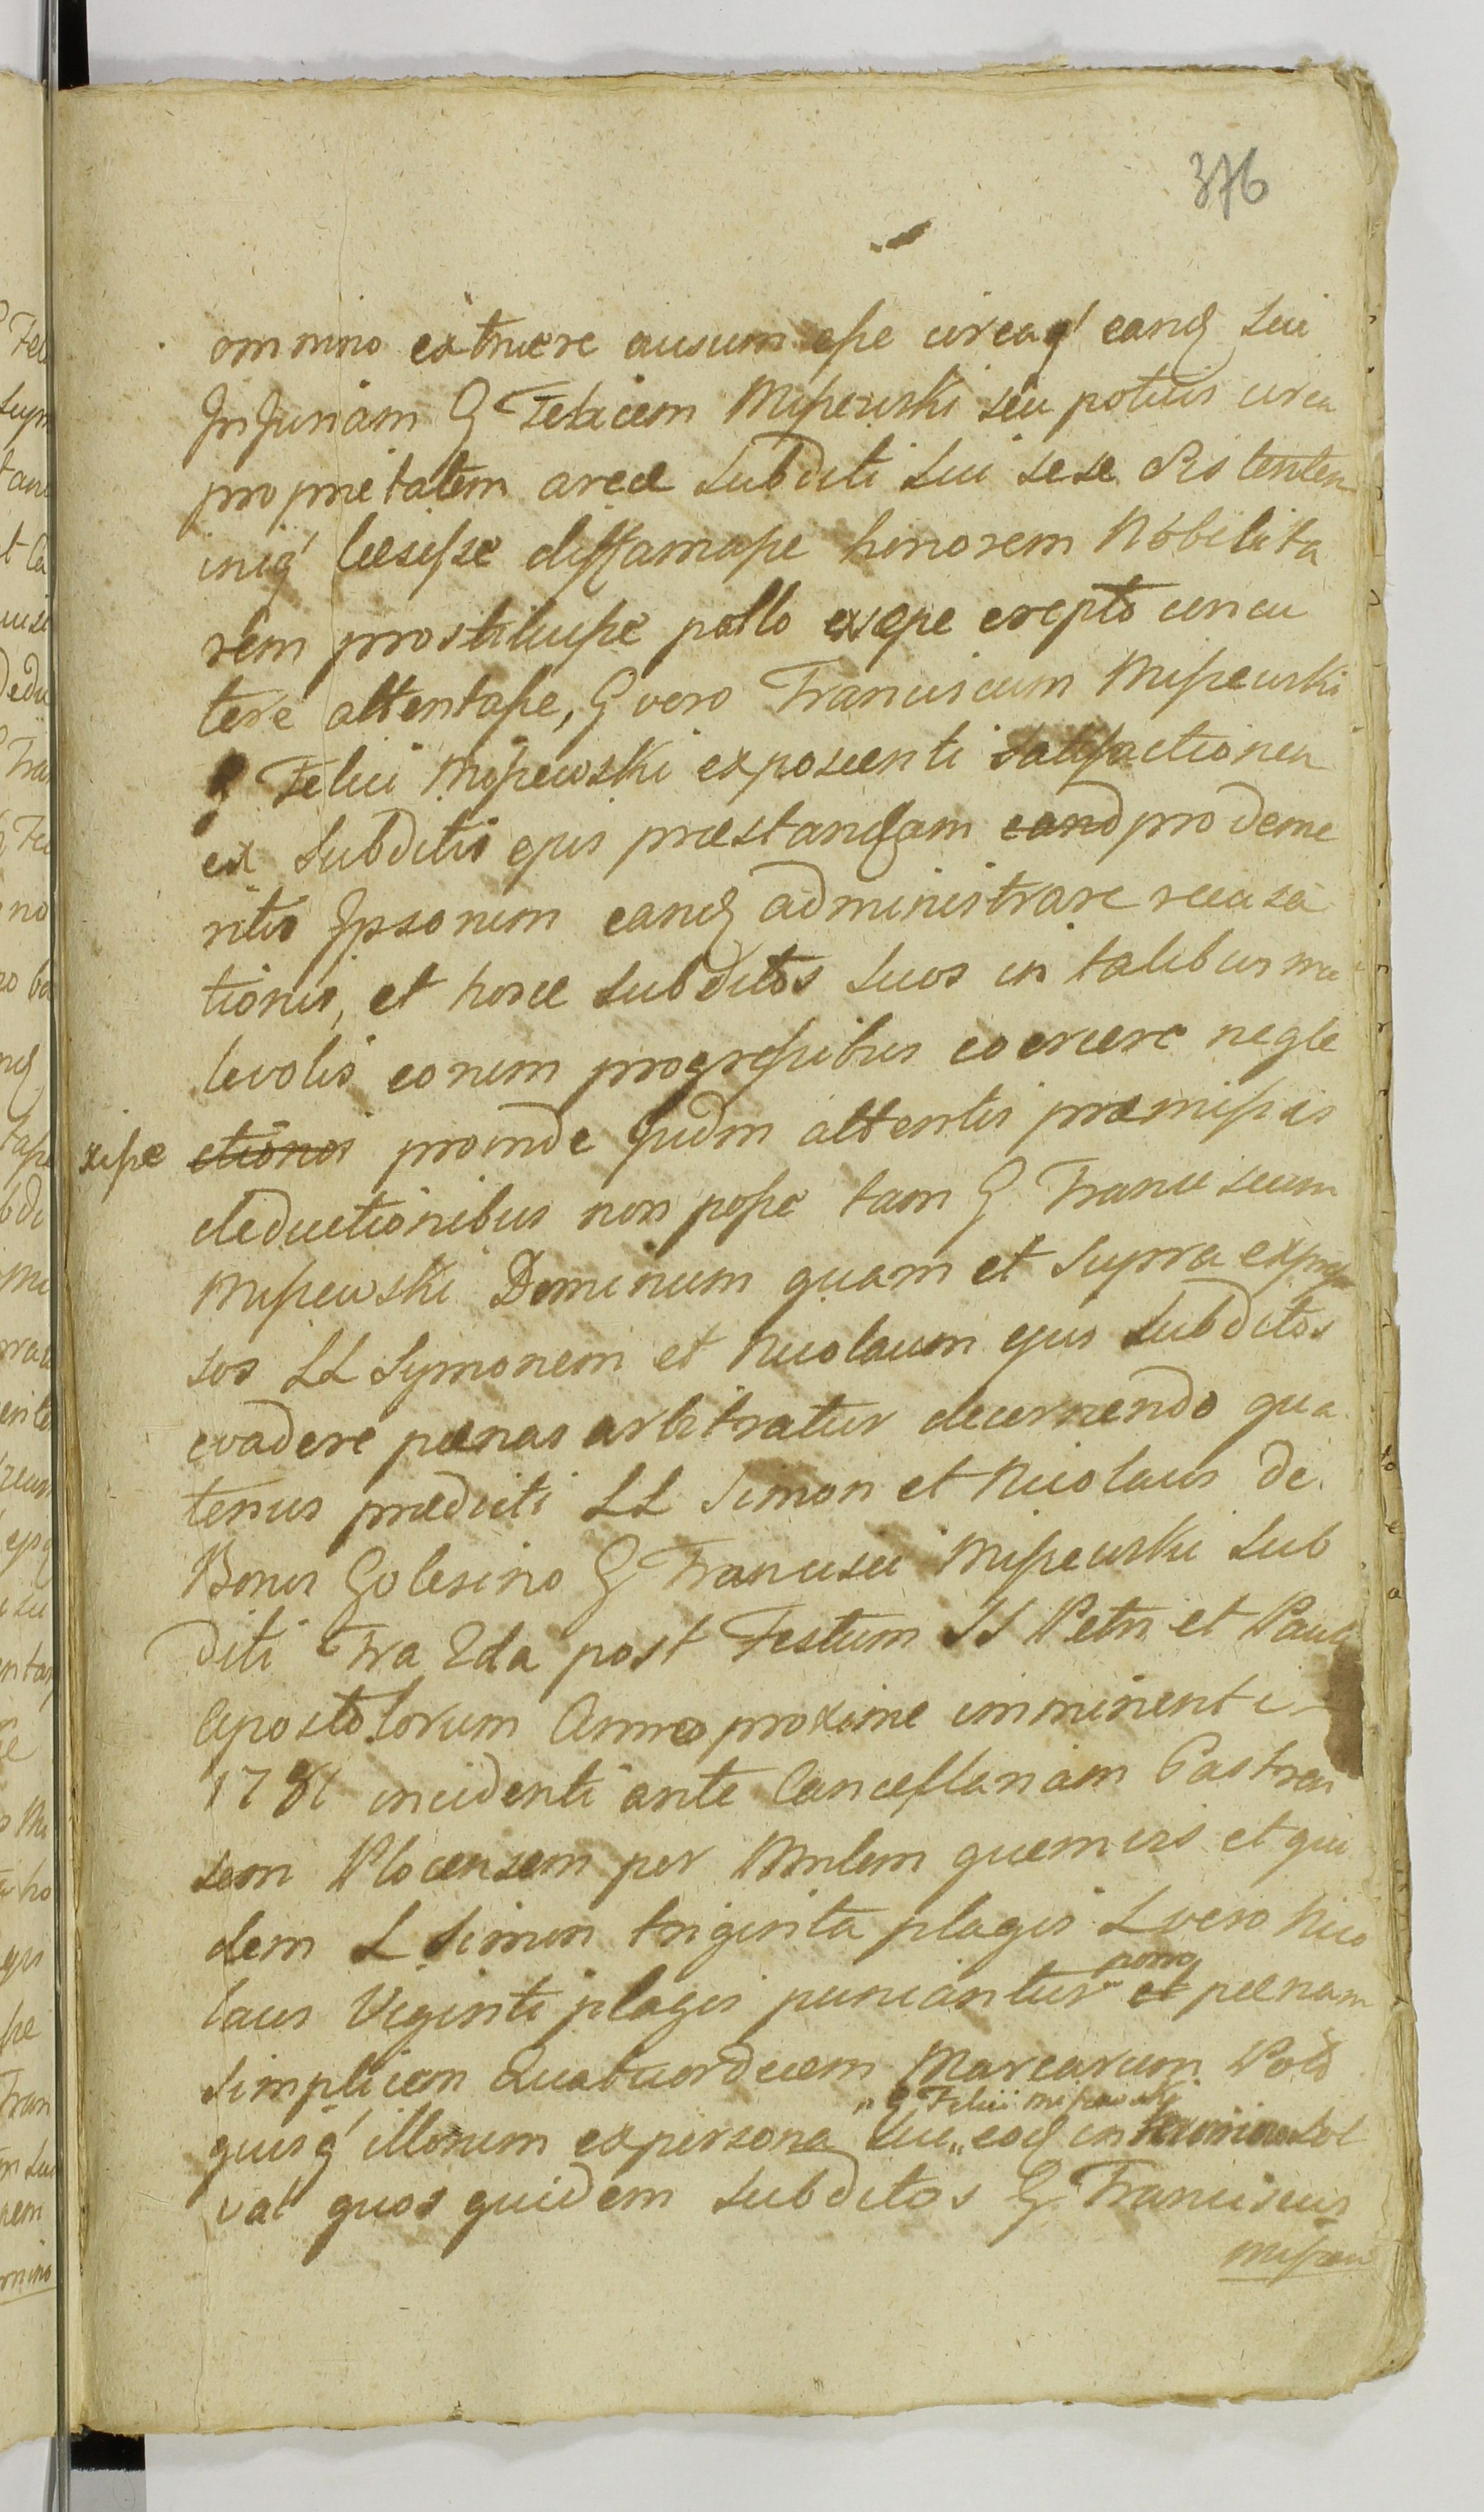 376
omnino extruere ausum esse circaq' eand Sui
Injuriam G Felicem Miszewski seu potius circa
proprietatem areæ Subditi Sui sese sistentem
iniq' læsisse diffamasse honorem Nobilita
rem prostituisse pallo exsepe erepto concu
tere attentasse, G vero Franciscum Miszewski
G Felici Miszewski exposcenti satisfactionem
ex Subditis ejus præstandam eand pro deme
ritis Ipsorum eand administrare recusa
tionis, et hosce subditos suos in talibus ma
levolis eorum progressibus coercere negle
xisse ctionis proinde quidm attentis præmissis
deductionibus non posse tam G Franciscum
Miszewski Dominum quam et supra expres
sos LL Symonem et Nicolaum ejus subditos
evadere pœnas arbitratur decernendo qua
tenus prædicti LL Simon et Nicolaus de
Bonis Golesino G Francisci Miszewski Sub
diti Fra 2da post Festum SS Petri et Pauli
Apostolorum Anno proxime imminenti
1781 incidenti ante Cancellariam Castren
sem Plocensem per Mnlem quemvis et qui
dem L Simon triginta plagis L vero Nico
laus Viginti plagis puniantur et pœnam
porro
simplicem Quatuordecem Marcarum Pold
G Felici Miszewski
quisq' illorum ex persona sui eod in termino sol
vat quos quidem subditos G Franciscus
Miszew